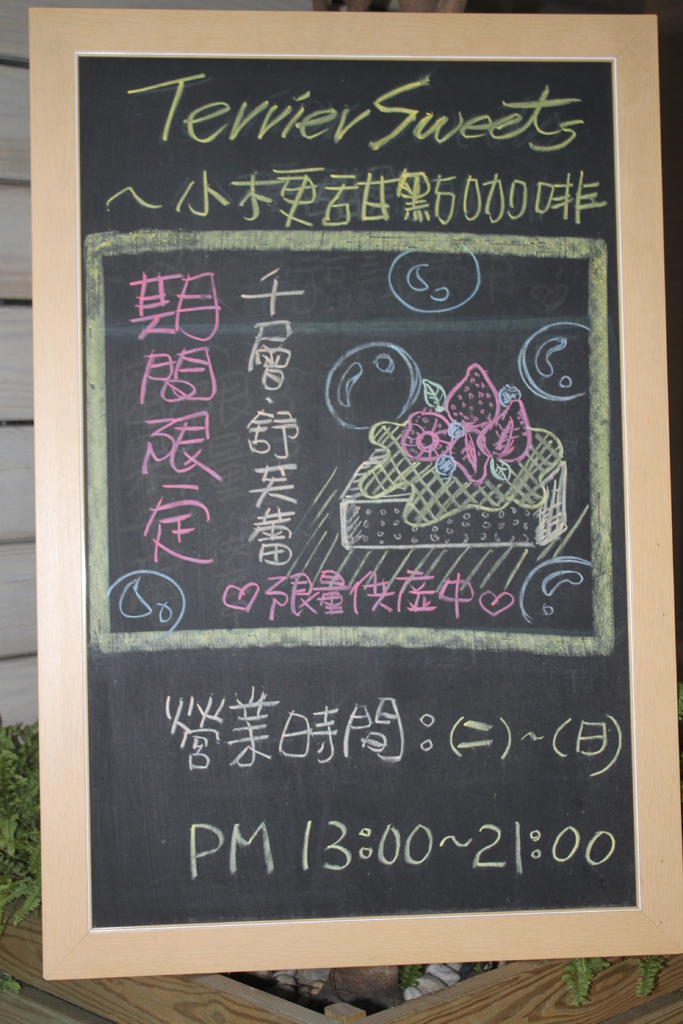 Terrier Sweets
~小梗甜點咖啡
期間限定
千層·舒芙蕾
♡限量供應中♡
營業時間：(二)~(日)
PM 13:00~21:00